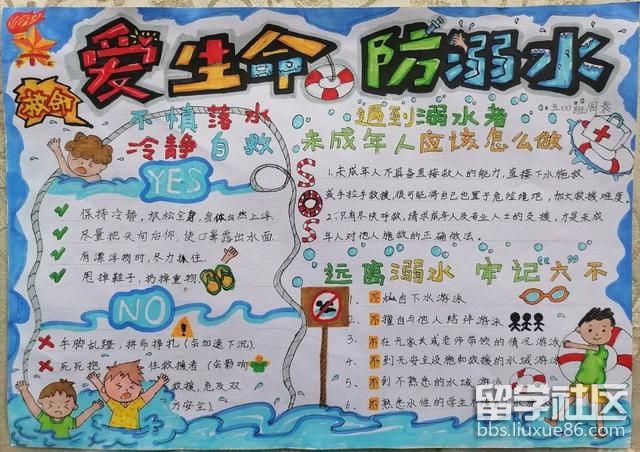 爱生命 防溺水
救命
五(3)班周袁
不慎落水
冷静自救
YES
✓ 保持冷静，放松全身，身体自然上浮
✓ 尽量把头向后仰，使口鼻露出水面
✓ 有漂浮物时，尽力抓住
✓ 甩掉鞋子，扔掉重物
NO
× 手脚乱蹬，拼命挣扎（会加速下沉）
× 死死抱住救援者（会影响
救援，危及双
方安全）
SOS
遇到溺水者
未成年人应该怎么做
1、未成年人不具备直接救人的能力，直接下水施救
或手拉手救援，很可能将自己也置于危险境地，加大救援难度。
2、只有尽快呼救，请求成年人及专业人士的支援，才是未成
年人对他人施救的正确做法。
远离溺水 牢记“六”不
1、不私自下水游泳
2、不擅自与他人结伴游泳
3、不在无家长或老师带领的情况游泳
4、不到无安全设施和救援的水域游泳
5、不到不熟悉的水域游泳
6、不熟悉水性的学生不
留学社区
bbs.liuxue86.com